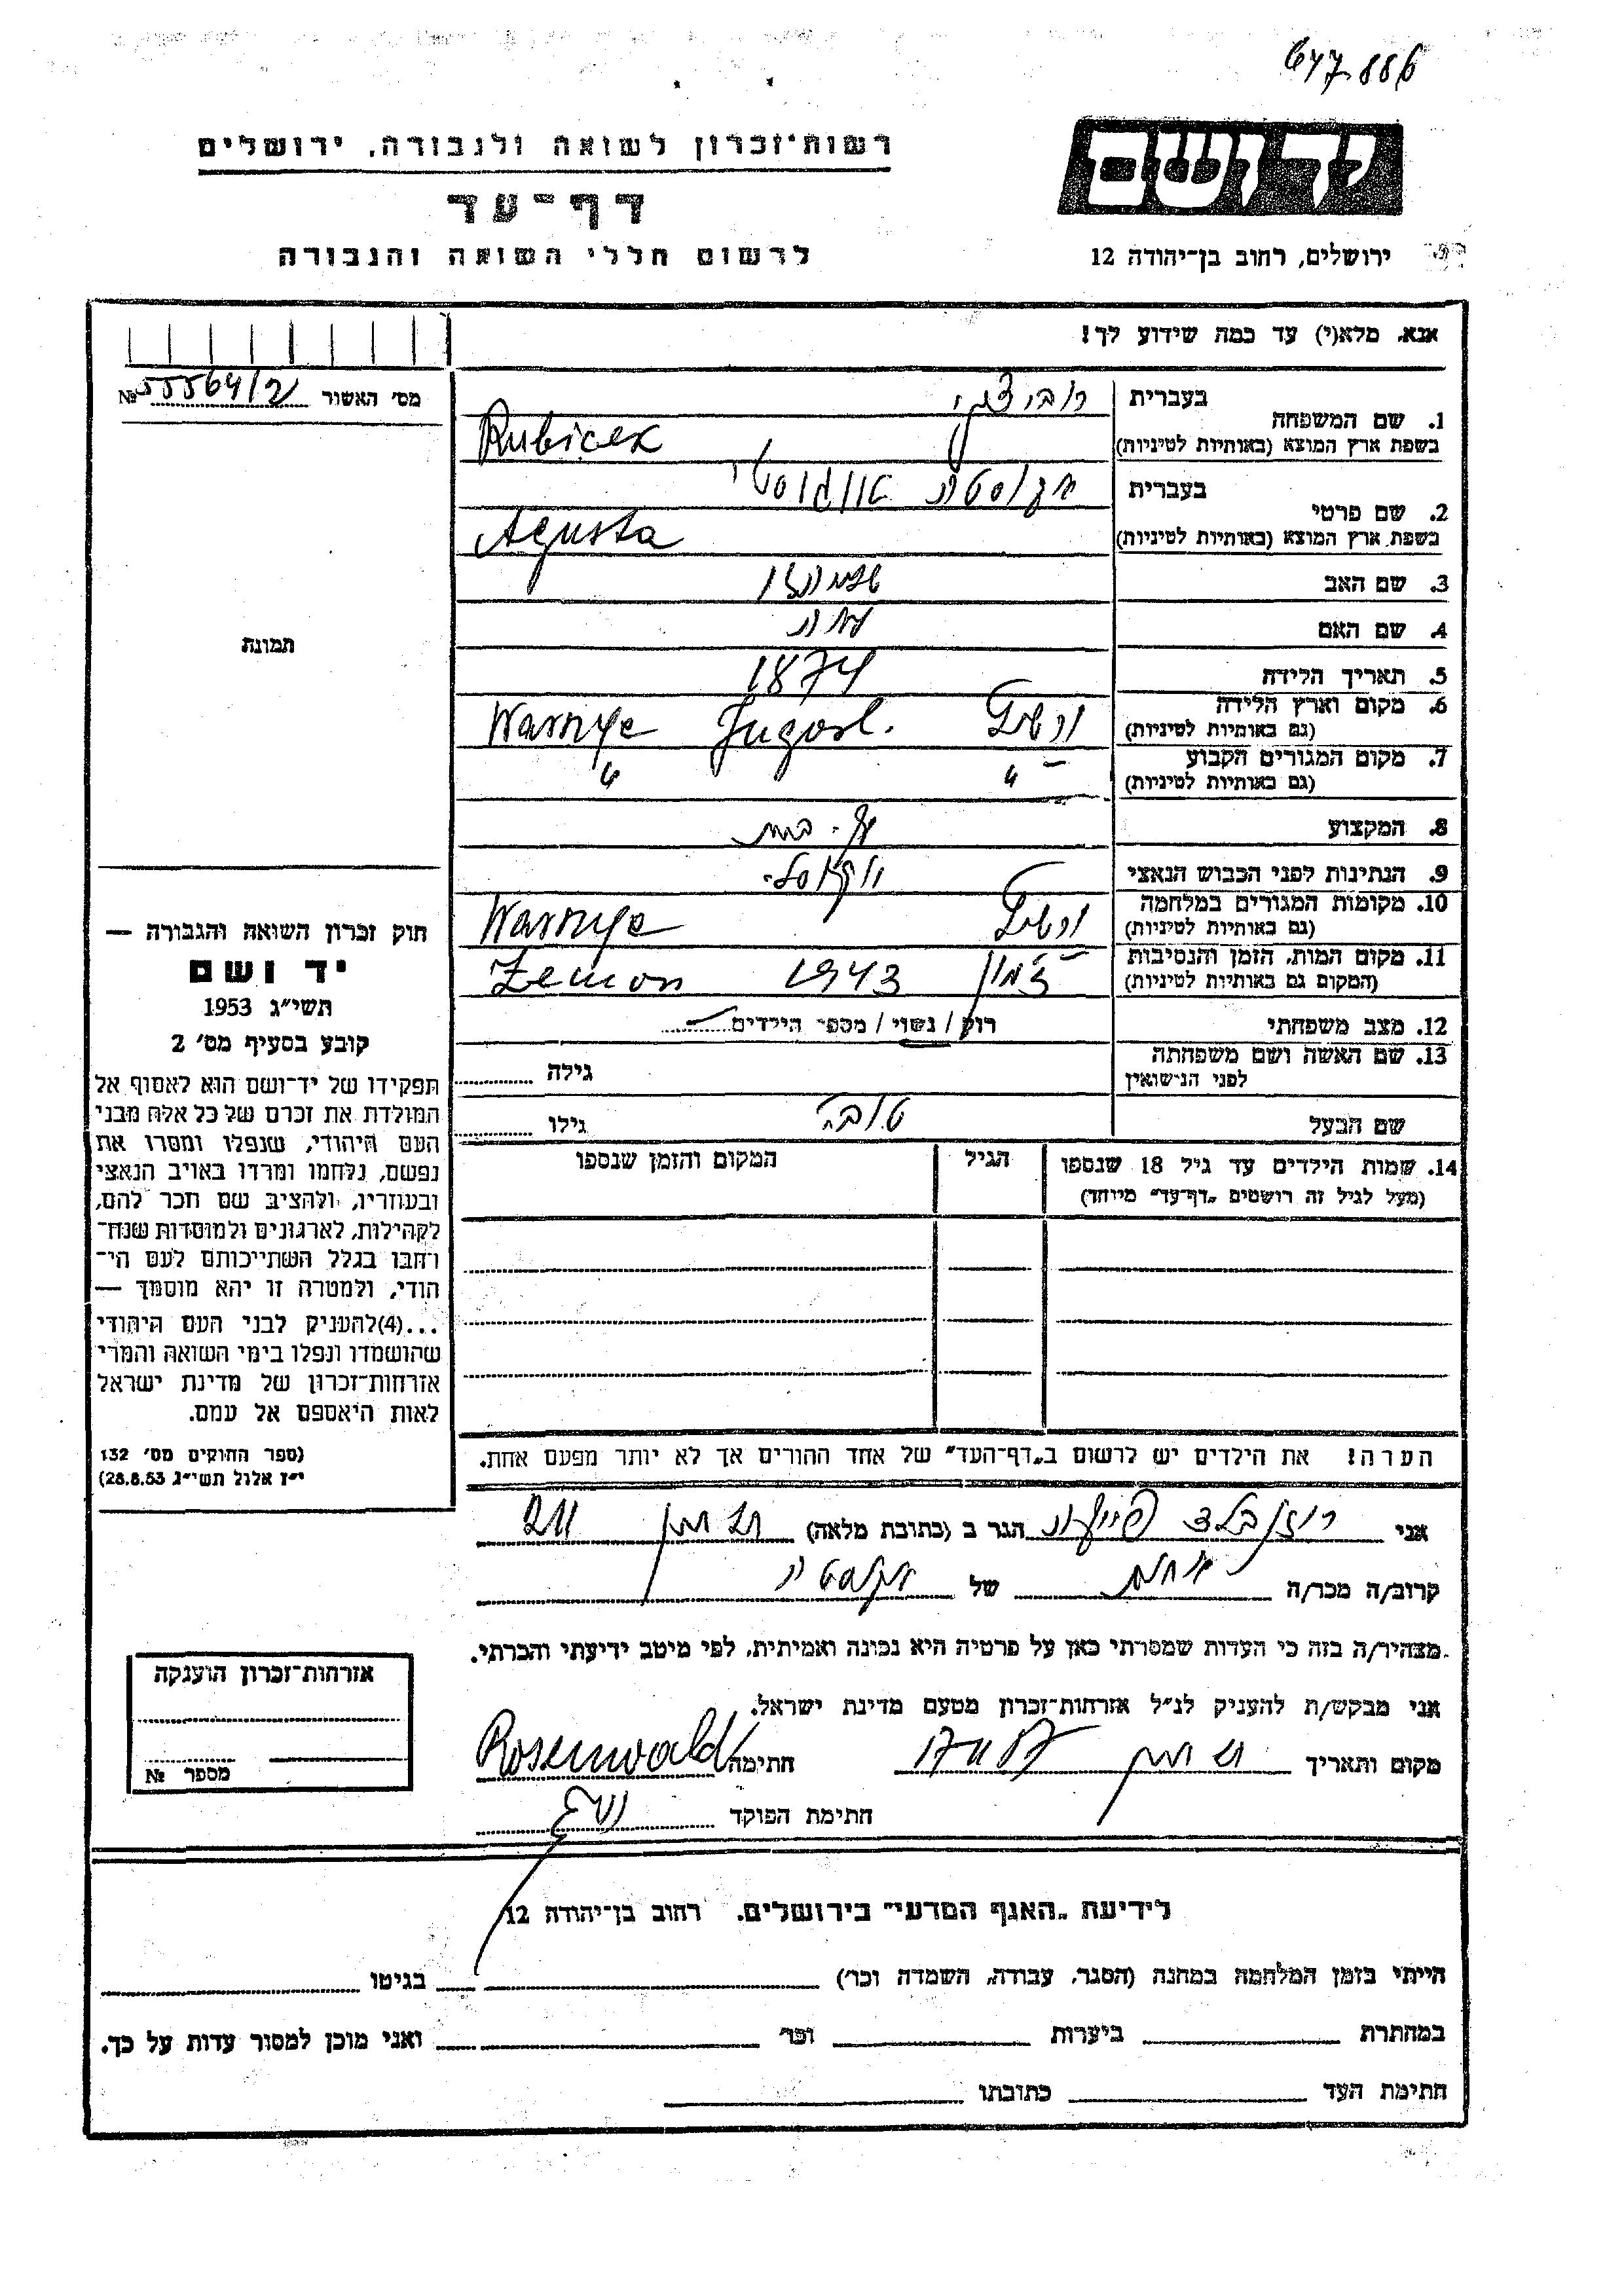 647.886
יד ושם
ירושלים, רחוב בן־יהודה 12
רשות־זכרון לשואה ולגבורה, ירושלים
דף־עד
לרשום חללי השואה והגבורה
אנא, מלא(י) עד כמה שידוע לך!
מס׳ האשור № 55564/2
תמונה
1. שם המשפחה
בעברית
בשפת ארץ המוצא (באותיות לטיניות) Rubicek
2. שם פרטי
בעברית
בשפת ארץ המוצא (באותיות לטיניות) Agusta
3. שם האב
4. שם האם
5. תאריך הלידה 1874
6. מקום וארץ הלידה
(גם באותיות לטיניות) Warnye Jugosl.
7. מקום המגורים הקבוע
(גם באותיות לטיניות) " "
8. המקצוע
9. הנתינות לפני הכבוש הנאצי
10. מקומות המגורים במלחמה
(גם באותיות לטיניות) Warnye
11. מקום המות, הזמן והנסיבות
(המקום גם באותיות לטיניות) 1943 Zemon
12. מצב משפחתי רוק / נשוי / מספר הילדים
13. שם האשה ושם משפחתה
לפני הנישואין
גילה
שם הבעל
גילו
14. שמות הילדים עד גיל 18 שנספו
(מעל לגיל זה רושמים „דף־עד" מיוחד)
הגיל
המקום והזמן שנספו
חוק זכרון השואה והגבורה —
יד ושם
תשי״ג 1953
קובע בסעיף מס׳ 2
תפקידו של יד־ושם הוא לאסוף אל
המולדת את זכרם של כל אלה מבני
העם היהודי, שנפלו ומסרו את
נפשם, נלחמו ומרדו באויב הנאצי
ובעוזריו, ולהציב שם וזכר להם,
לקהילות, לארגונים ולמוסדות שנח־
רחבו בגלל השתייכותם לעם הי־
הודי, ולמטרה זו יהא מוסמך —
...(4)להעניק לבני העם היהודי
שהושמדו ונפלו בימי השואה והמרי
אזרחות־זכרון של מדינת ישראל
לאות היאספם אל עמם.
(ספר החוקים מס׳ 132
י״ז אלול תשי״ג 28.8.53)
הערה! את הילדים יש לרשום ב„דף־העד" של אחד ההורים אך לא יותר מפעם אחת.
אני
הגר ב (כתובת מלאה)
קרוב/ה מכר/ה
של
מצהיר/ה בזה כי העדות שמסרתי כאן על פרטיה היא נכונה ואמיתית, לפי מיטב ידיעתי והכרתי.
אני מבקש/ת להעניק לנ״ל אזרחות־זכרון מטעם מדינת ישראל.
מקום ותאריך
חתימה Rosenwald
חתימת הפוקד
אזרחות־זכרון הוענקה
מספר №
לידיעת „האגף המדעי" בירושלים, רחוב בן־יהודה 12
הייתי בזמן המלחמה במחנה (הסגר, עבודה, השמדה וכו׳) בגיטו
במחתרת ביערות וכו׳ ואני מוכן למסור עדות על כך.
חתימת העד כתובתו